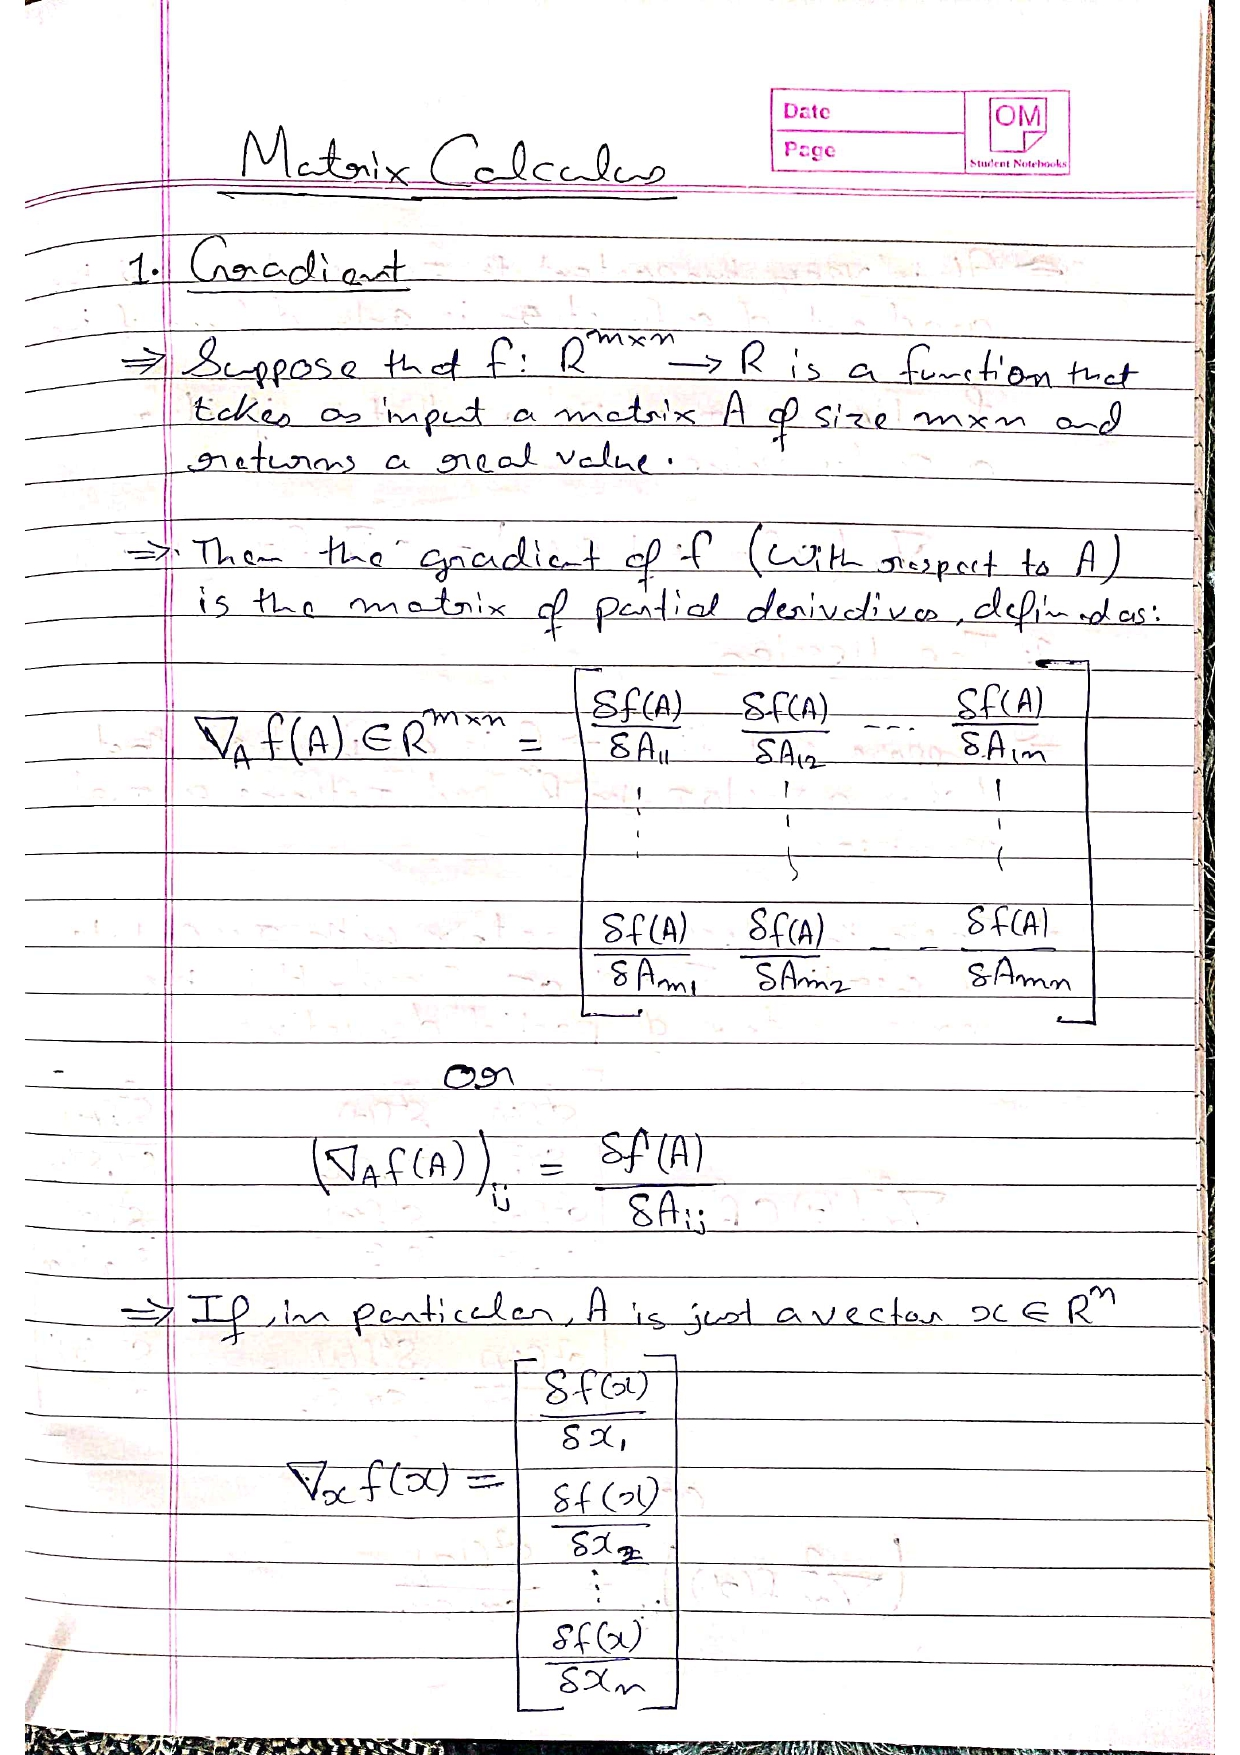 Date
Page
OM
Student Notebooks
Matrix Calculus
1. Gradient
⇒ Suppose that f: R^{m×n} → R is a function that
takes as input a matrix A of size m×n and
returns a real value.
⇒ Then the gradient of f (with respect to A)
is the matrix of partial derivatives, defined as:
∇_A f(A) ∈ R^{m×n} = [ δf(A)/δA_{11} δf(A)/δA_{12} --- δf(A)/δA_{1n}
⋮ ⋮ ⋮
δf(A)/δA_{m1} δf(A)/δA_{m2} -- δf(A)/δA_{mn} ]
or
(∇_A f(A))_{ij} = δf(A)/δA_{ij}
⇒ If, in particular, A is just a vector x ∈ R^n
∇_x f(x) = [ δf(x)/δx_1
δf(x)/δx_2
⋮
δf(x)/δx_n ]